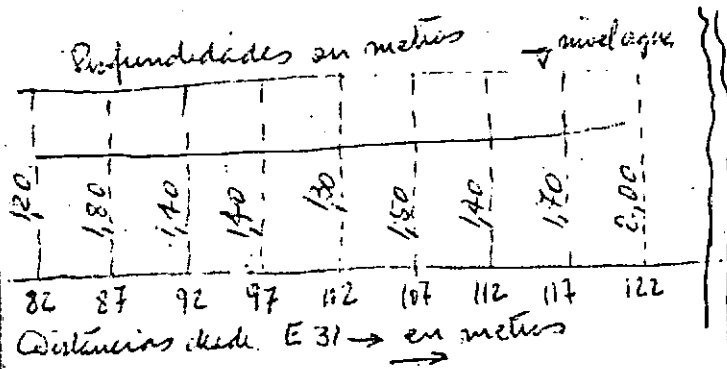 Profundedades en metros → nivel agua
1,20 1,80 1,40 1,40 1,30 1,50 1,40 1,70 2,00
82 87 92 97 102 107 112 117 122
Distáncias desde E 31 → en metros